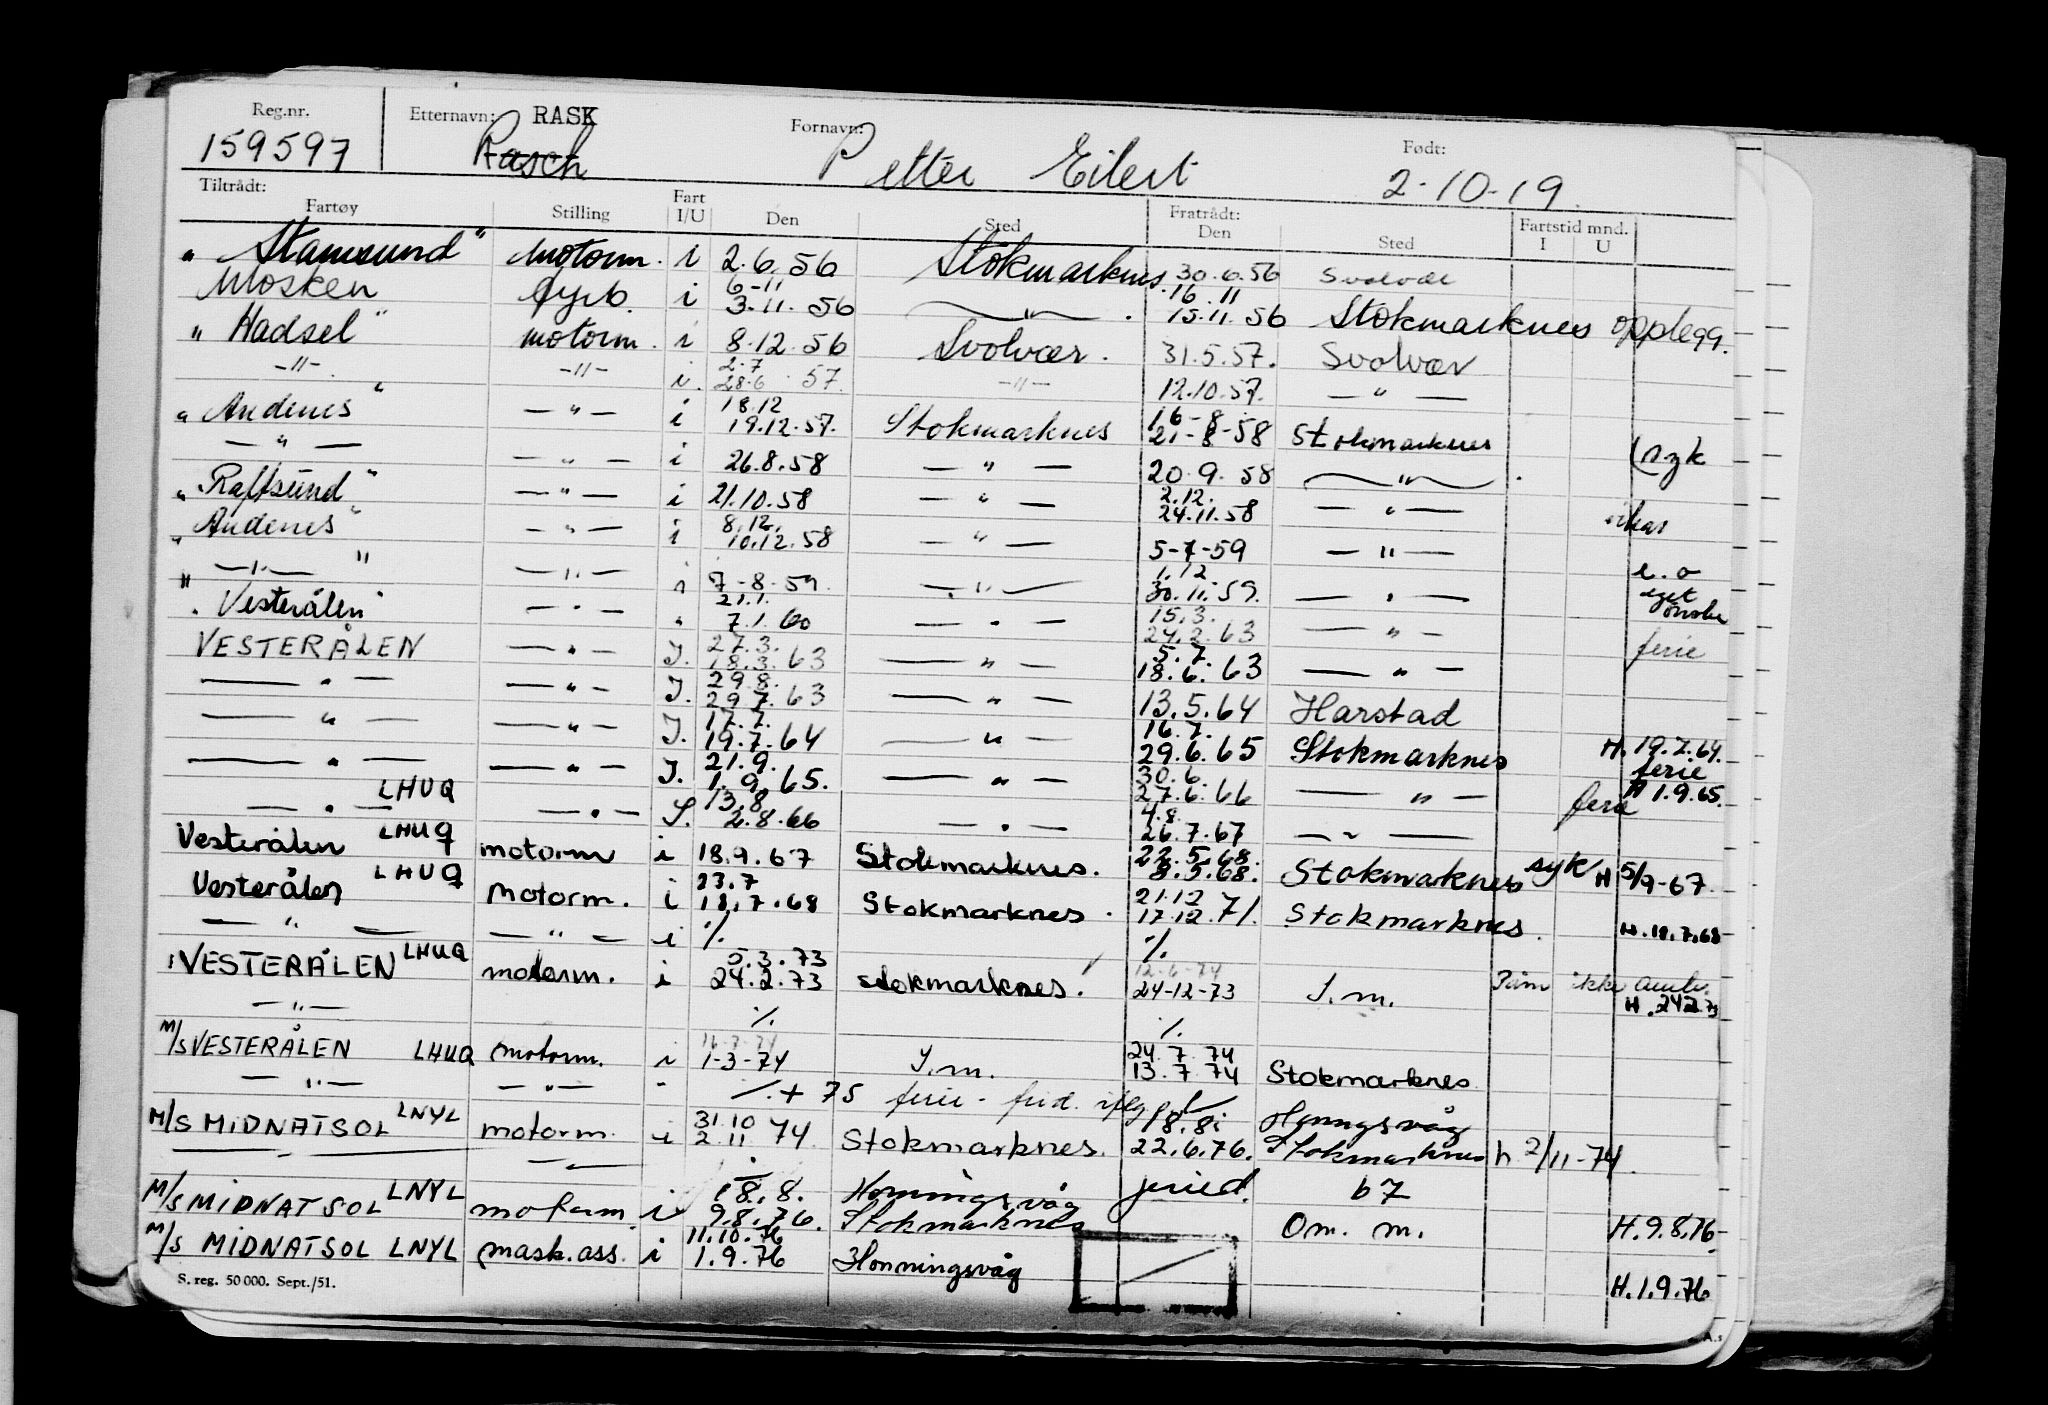 Reg.nr. Etternavn: RASK Fornavn: Født:
159597 Rasch Petter Eilert 2-10-19.
Tiltrådt: Fratrådt:
Fartøy Stilling Fart I/U Den Sted Den Sted Fartstid mnd. I U
"Stamsund" motorm. i 2.6.56 Stokmarknes 30.6.56 Svolvær
6-11 16.11
Mosken fyrb. i 3.11.56 —"— . 15.11.56 Stokmarknes opplegg.
"Hadsel" motorm. i 8.12.56 Svolvær. 31.5.57. Svolvær
2.7
—"— —"— i. 28.6.57. —"— 12.10.57. —"—
18.12 16-8.
"Andenes" —"— i 19.12.57. Stokmarknes 21-8-58 Stokmarknes (syk
—"— —"— i 26.8.58 —"— 20.9.58 —"— .
2.12.
"Raftsund" —"— i 21.10.58 —"— 24.11.58 —"—
8.12.
"Andenes" —"— i 10.12.58 —"— 5-7-59 —"— e.o
1.12.
" —"— " —"— i 7-8-59. —"— 30.11.59. —"— eget ønske
21.1. 15.3.
"Vesterålen" —"— " 7.1.60 —"— 24.2.63 —"— ferie
27.3. 5.7.
VESTERÅLEN —"— I. 18.3.63 —"— 18.6.63 —"—
29.8.
—"— —"— I. 29.7.63 —"— 13.5.64 Harstad
17.7. 16.7.
—"— —"— I. 19.7.64 —"— 29.6.65 Stokmarknes H. 19.7.64. ferie
21.9. 30.6.
—"— —"— I. 1.9.65. —"— 27.6.66 —"— ferie H 1.9.65.
13.8. 4.8.
—"— LHUQ —"— I. 2.8.66 —"— 26.7.67 —"—
22.5.68.
Vesterålen LHUQ motorm i 18.9.67 Stokmarknes. 8.5.68. Stokmarknes syk H 5/9-67.
23.7 21.12
Vesterålen LHUQ motorm. i 18.7.68 Stokmarknes. 17.12.71. Stokmarknes. H.18.7.68
—"— —"— i ./. ./.
5.3.73 12-6-74
VESTERÅLEN LHUQ motorm. i 24.2.73 stokmarknes. 24-12-73 I.m. ikke H.24.2.73
—"— ./. ./.
24.7.74
M/S VESTERÅLEN LHUQ motorm. i 1-3-74 I.m. 13.7.74 Stokmarknes
—"— —"— " ./. + 75 ferie - frid.
31.10 18.8. Honningsvåg
M/S MIDNATSOL LNYL motorm. i 2.11.74. Stokmarknes. 22.6.76. Stokmarknes h. 2/11-74.
—"— —"—
18.8. Honningsvåg
M/S MIDNATSOL LNYL motorm. i 9.8.76. Stokmarknes Om. m. H.9.8.76
11.10.76
M/S MIDNATSOL LNYL mask.ass. i 1.9.76 Honningsvåg H.1.9.76
S. reg. 50 000. Sept./51.